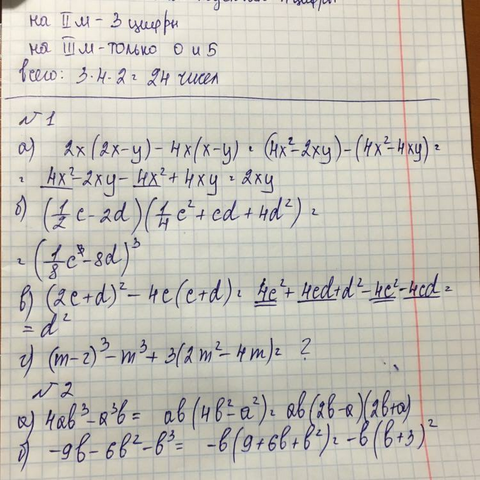 на II м - 3 цифры
на III м - только 0 и 5
всего: 3·4·2 = 24 чисел
№1
а) 2x(2x-y) - 4x(x-y) = (4x²-2xy)-(4x²-4xy) =
= 4x²-2xy-4x²+4xy = 2xy
б) (1/2 c - 2d)(1/4 c² + cd + 4d²) =
= (1/8 c³ - 8d)³
в) (2c+d)² - 4c(c+d) = 4c² + 4cd + d² - 4c² - 4cd =
= d²
г) (m-2)³ - m³ + 3(2m² - 4m) = ?
№2
а) 4ab³ - a³b = ab(4b² - a²) = ab(2b-a)(2b+a)
б) -9b - 6b² - b³ = -b(9+6b+b²) = -b(b+3)²